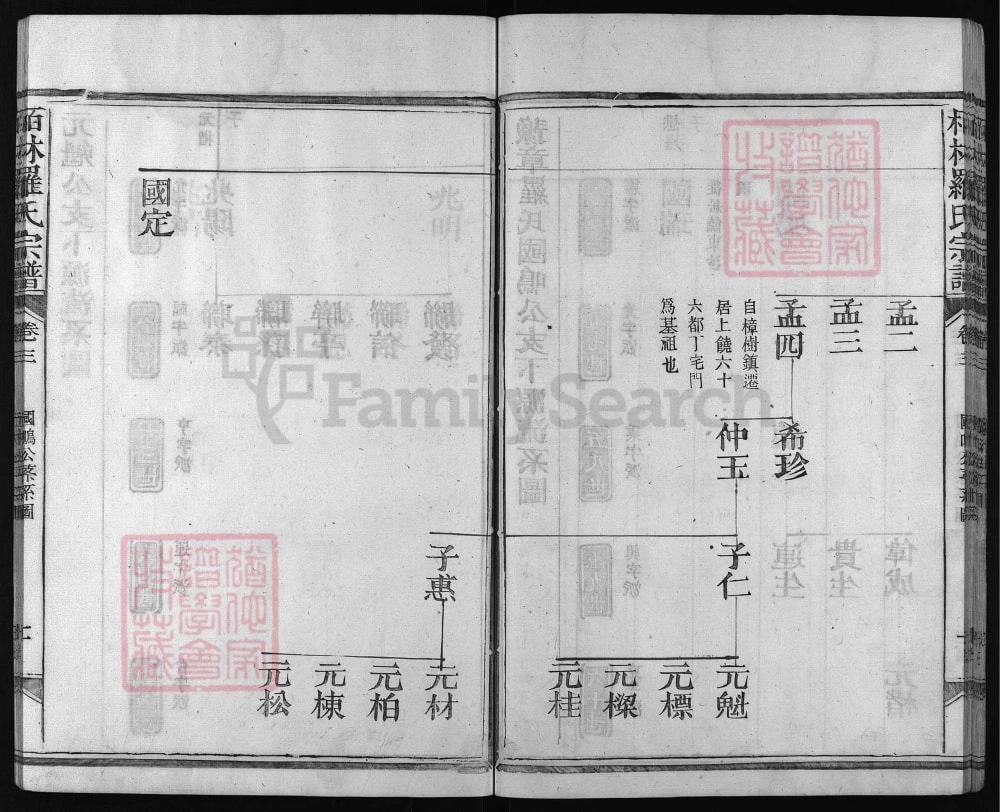 柏林羅氏宗譜
孟二
孟三
孟四
自樟樹鎮遷
居上饒六十
六都丁宅門
爲基祖也
希珍
仲玉
子仁
元魁
元標
元樑
元桂
子惠
元材
元柏
元棟
元松
國定
柏林羅氏宗譜
卷三
國鳴公菜系圖
FamilySearch